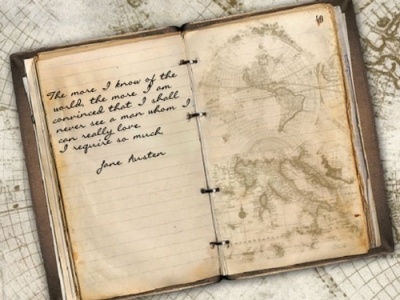 The more I know of the
world, the more I am
convinced that I shall
never see a man whom I
can really love.
I require so much
Jane Austen